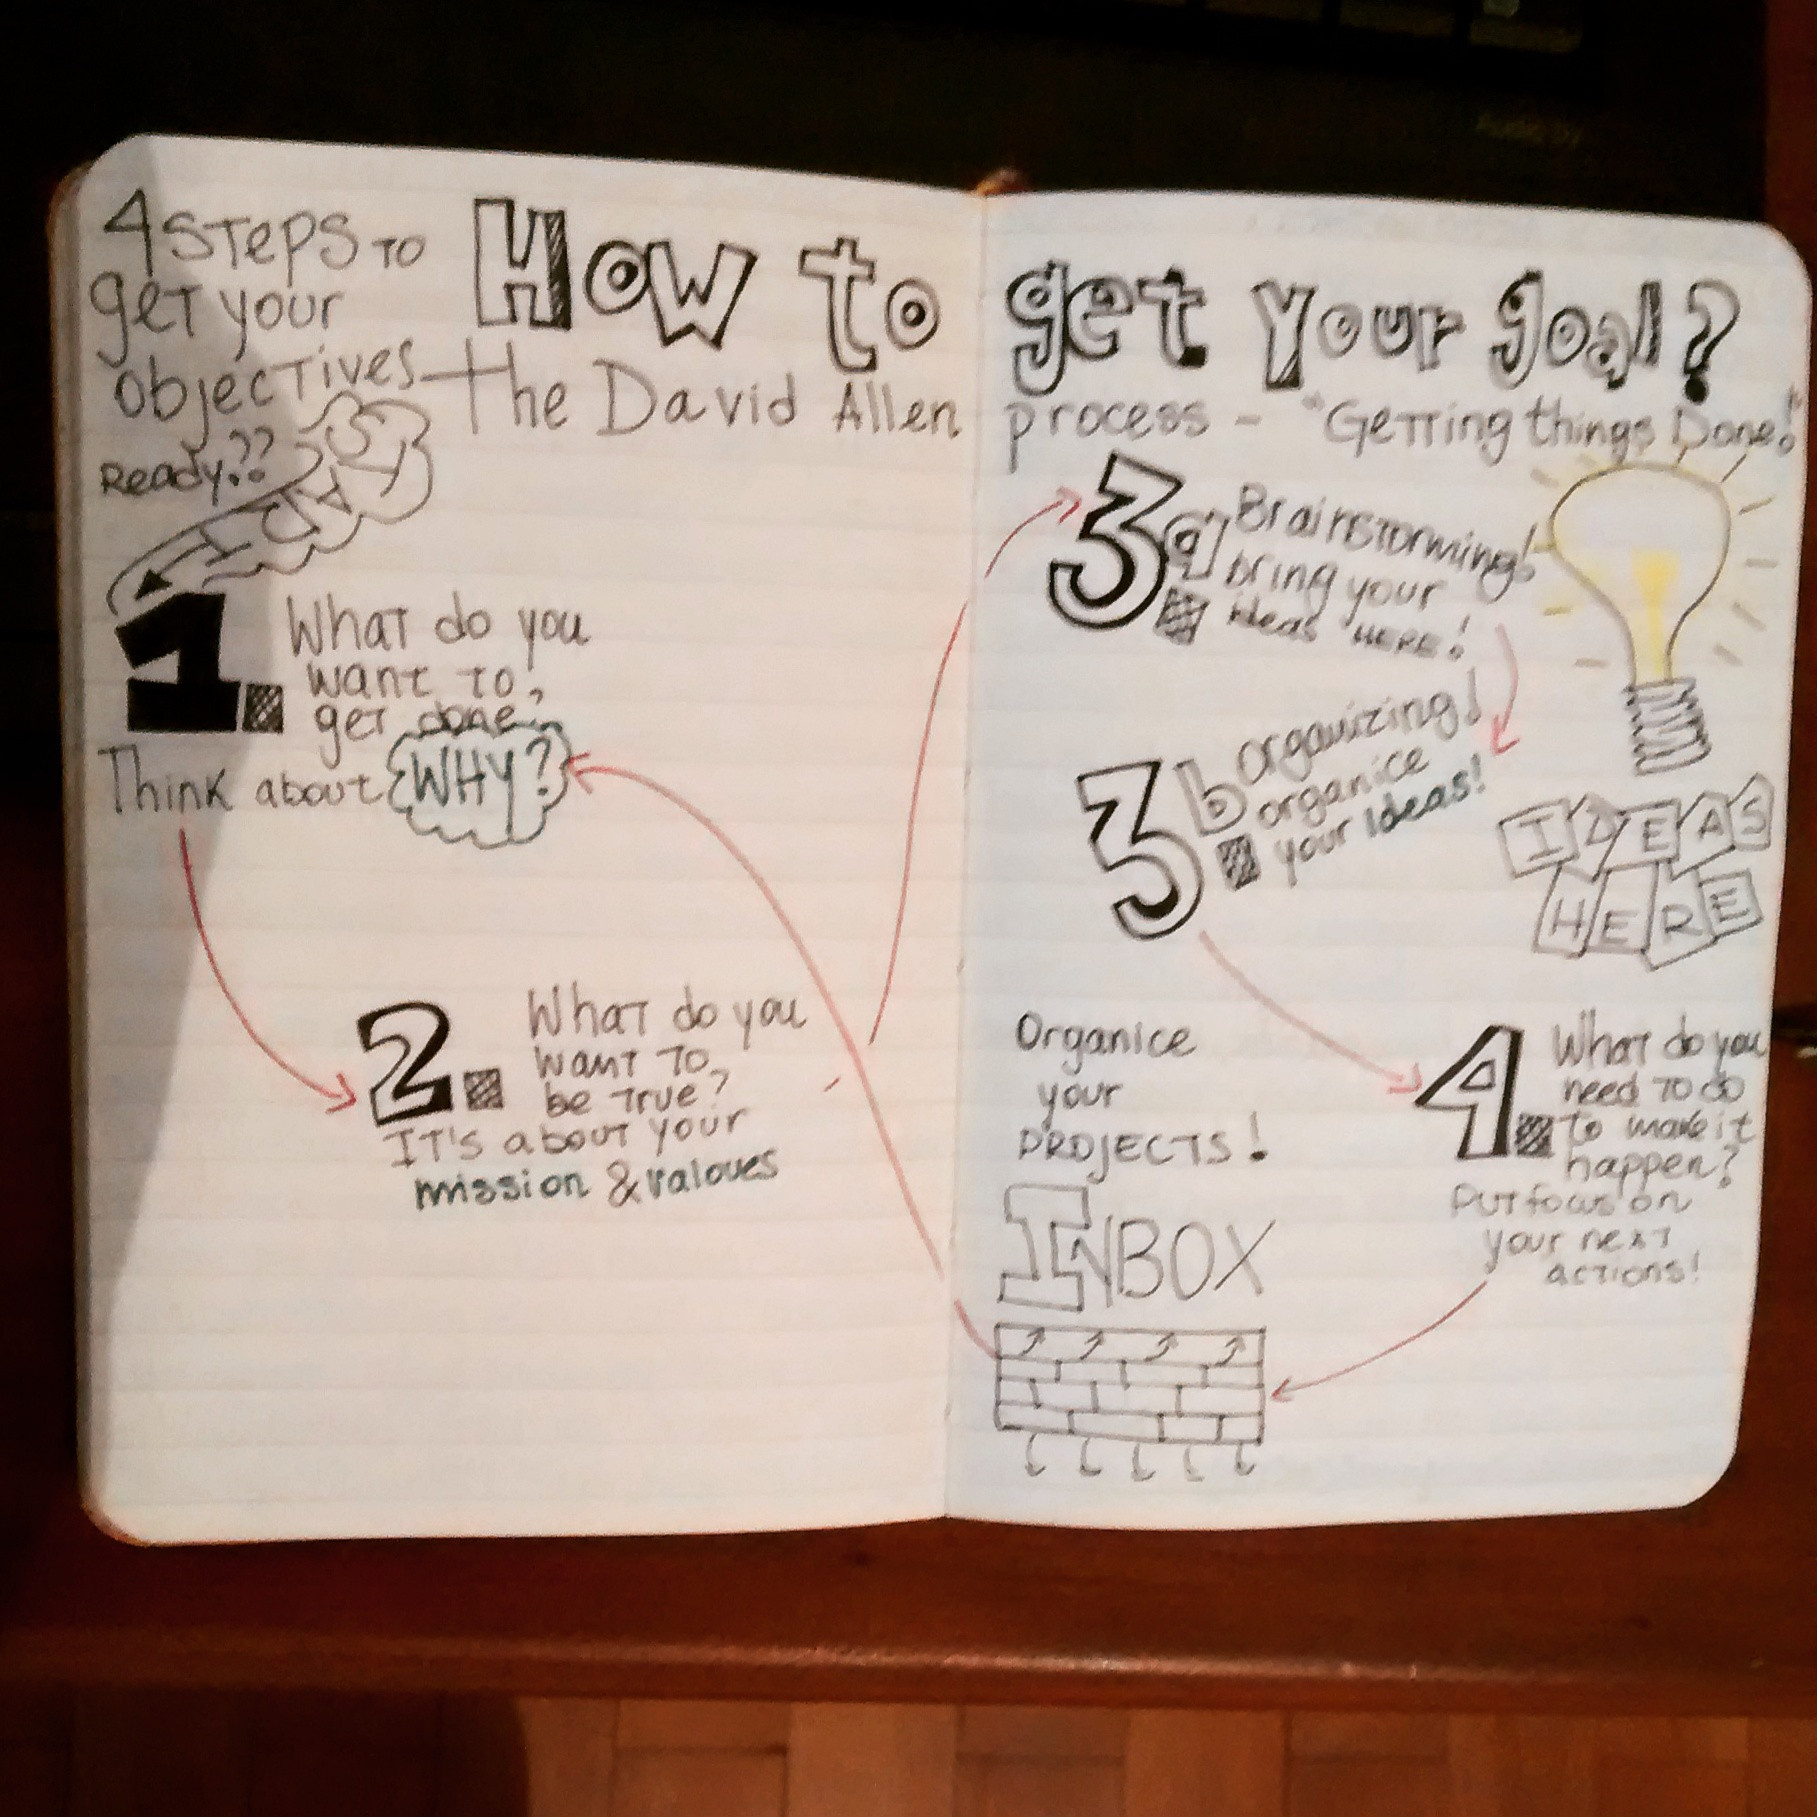 How to get your goal?
4 STEPS TO
get your
objectives - the David Allen process - "Getting things Done!"
Ready??
1. What do you
want to
get done?
Think about WHY?
2. What do you
want to
be true?
IT'S about your
mission & valoues
3a. Brainstorming!
bring your
ideas HERE!
3b. organizing!
organice
your ideas!
IDEAS
HERE
4. What do you
need to do
to make it
happen?
Put focus on
your next
actions!
Organice
your
PROJECTS!
INBOX